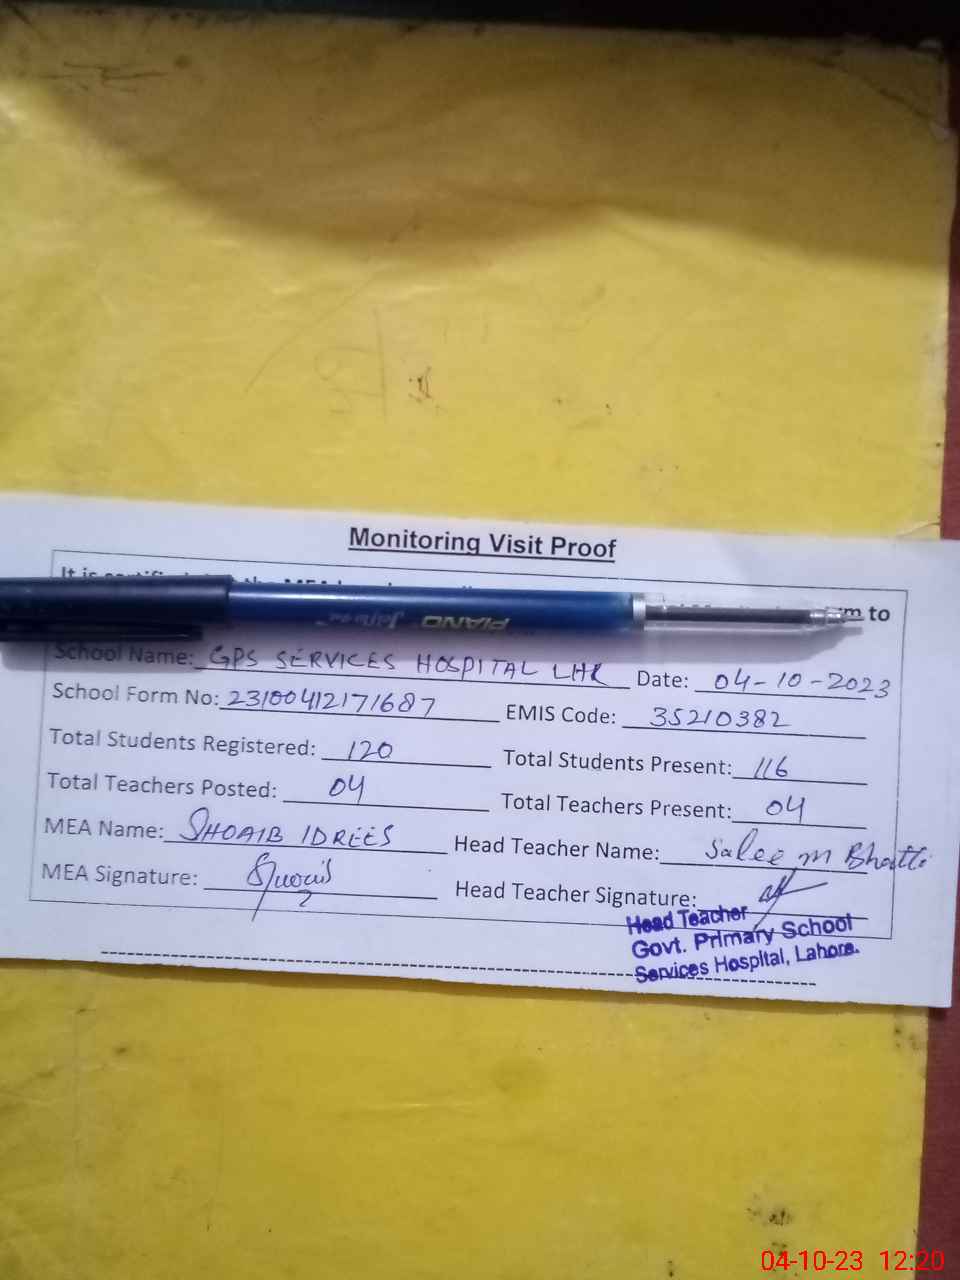 Monitoring Visit Proof
It is certified to
PIANO
School Name: GPS SERVICES HOSPITAL LHR Date: 04-10-2023
School Form No: 23100412171687 EMIS Code: 35210382
Total Students Registered: 120 Total Students Present: 116
Total Teachers Posted: 04 Total Teachers Present: 04
MEA Name: SHOAIB IDREES Head Teacher Name: Saleem Bhatti
MEA Signature: Head Teacher Signature:
Head Teacher
Govt. Primary School
Services Hospital, Lahore.
04-10-23 12:20